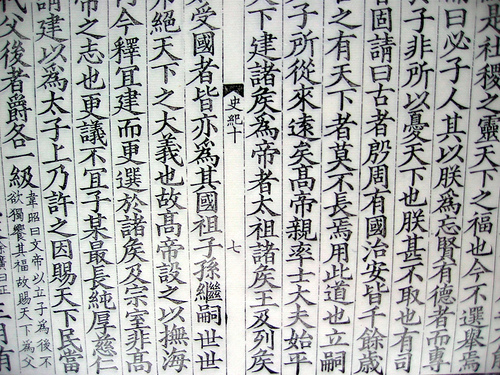 稷之靈天下之福也今不選舉焉
曰必子人其以朕爲忘賢有德者而專
子非所以憂天下也朕甚不取也有司
固請曰古者殷周有國治安皆千餘歲
之有天下者莫不長焉用此道也立嗣
子所從來遠矣髙帝親率士大夫始平
下建諸矦爲帝者太祖諸矦王及列矦
史紀十
七
受國者皆亦爲其國祖子孫繼嗣世世
絕天下之大義也故髙帝設之以撫海
今釋宜建而更選於諸矦及宗室非髙
帝之志也更議不宜子某最長純厚慈仁
請建以爲太子上乃許之因賜天下民當
代父後者爵各一級
韋昭曰文帝以立子爲後不
欲獨饗其福故賜天下爲父
三月有